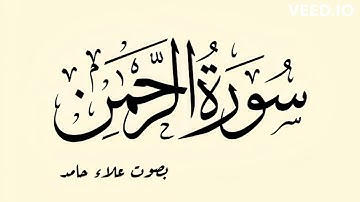 VEED.IO
سُورَةُ الرَّحْمَن
بصوت علاء حامد